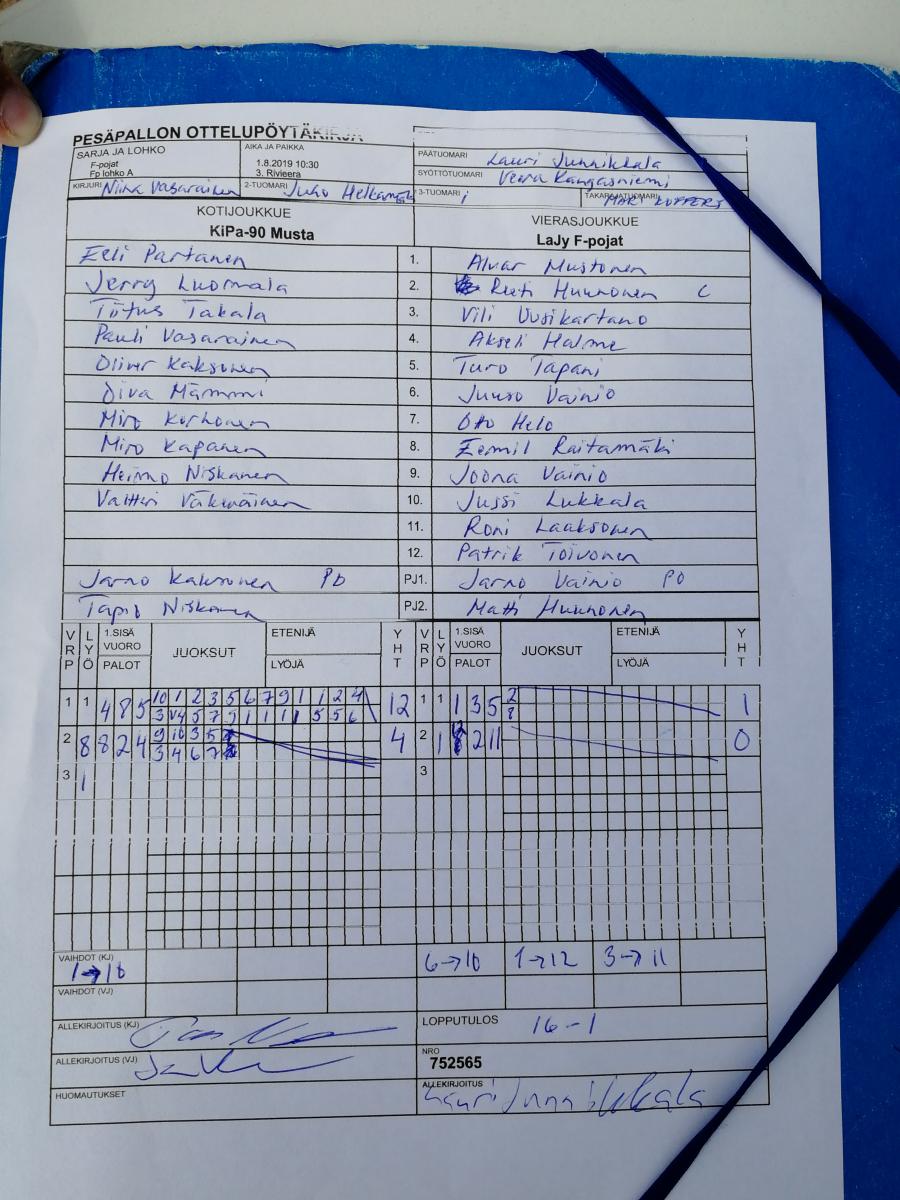 PESÄPALLON OTTELUPÖYTÄKIRJA
SARJA JA LOHKO
F-pojat
Fp lohko A
AIKA JA PAIKKA
1.8.2019 10:30
3. Rivieera
PÄÄTUOMARI Lauri Junnikkala
SYÖTTÖTUOMARI Veera Kangasniemi
KIRJURI Niina Vasarainen
2-TUOMARI Juho
3-TUOMARI
TAKARAJATUOMARI
KOTIJOUKKUE
KiPa-90 Musta
VIERASJOUKKUE
LaJy F-pojat
Eeli Partanen 1. Alvar Mustonen
Jerry Luormala 2. Huunonen C
Tiitus Takala 3. Vili Uusikartano
Pauli Vasarainen 4. Akseli Halme
Oliver Kaksonen 5. Turo Tapani
Mämmi 6. Juuso Vainio
Miro Korhonen 7. Otto Helo
Miro Kapanen 8. Eemil Raitamäki
Heimo Niskanen 9. Joona Vainio
Valtteri Väkeväinen 10. Jussi Lukkala
11. Roni Laaksonen
12. Patrik Toivonen
Jarno Kaksonen PJ1. Jarno Vainio
Tapio Niskanen PJ2. Matti Huunonen
VRP LYÖ 1.SISÄ VUORO PALOT JUOKSUT ETENIJÄ LYÖJÄ YHT VRP LYÖ 1.SISÄ VUORO PALOT JUOKSUT ETENIJÄ LYÖJÄ YHT
1 1 4 8 5 10 1 2 3 5 6 7 9 1 1 2 4 12 1 1 1 3 5 2 1
3 4 5 7 9 1 1 1 1 5 5 6 8
2 8 8 2 4 9 10 3 5 4 2 1 2 11 0
3 4 6 7
3 1 3
VAIHDOT (KJ)
1→10 6→10 1→12 3→11
VAIHDOT (VJ)
ALLEKIRJOITUS (KJ)
LOPPUTULOS 16-1
ALLEKIRJOITUS (VJ)
NRO
752565
HUOMAUTUKSET
ALLEKIRJOITUS
Lauri Junnikkala